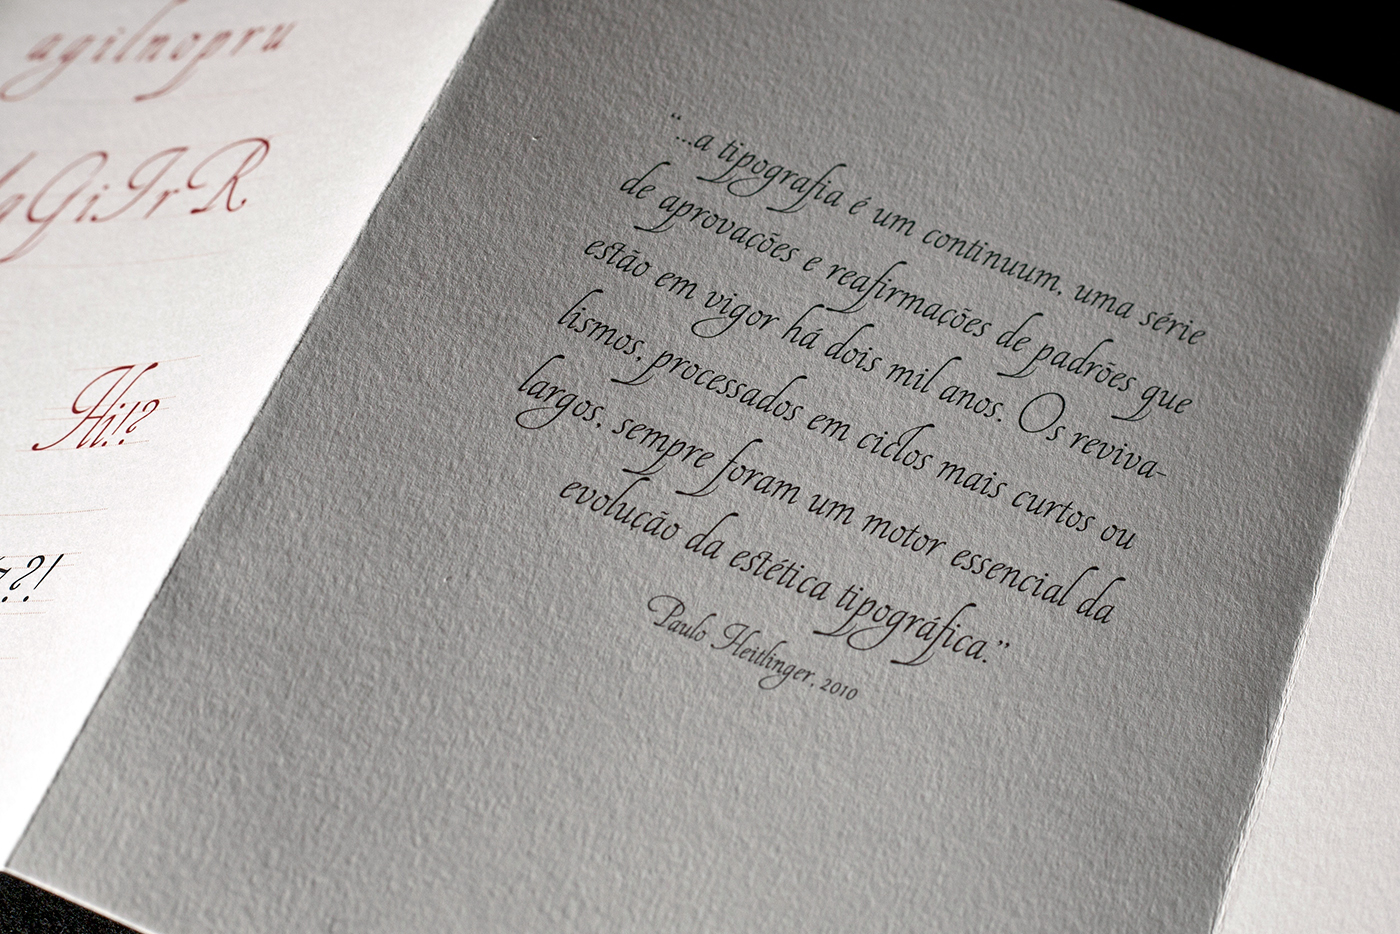 agilnopru
GiIrR
Hi!?
?!
“...a tipografia é um continuum, uma série
de aprovações e reafirmações de padrões que
estão em vigor há dois mil anos. Os reviva-
lismos, processados em ciclos mais curtos ou
largos, sempre foram um motor essencial da
evolução da estética tipográfica.”
Paulo Heitlinger, 2010